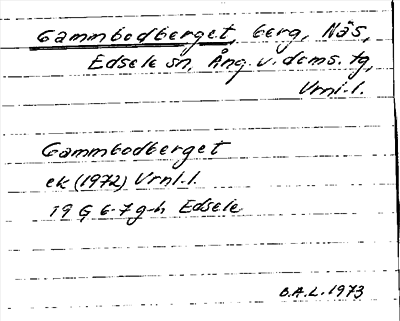 Gammbodberget, berg, Näs,
Edsele sn, Ång. v. doms. tg,
Vrnl.l.
Gammbodberget
ek (1972) Vrnl.l.
19 G 6-7 g-h Edsele
B.A.L. 1973